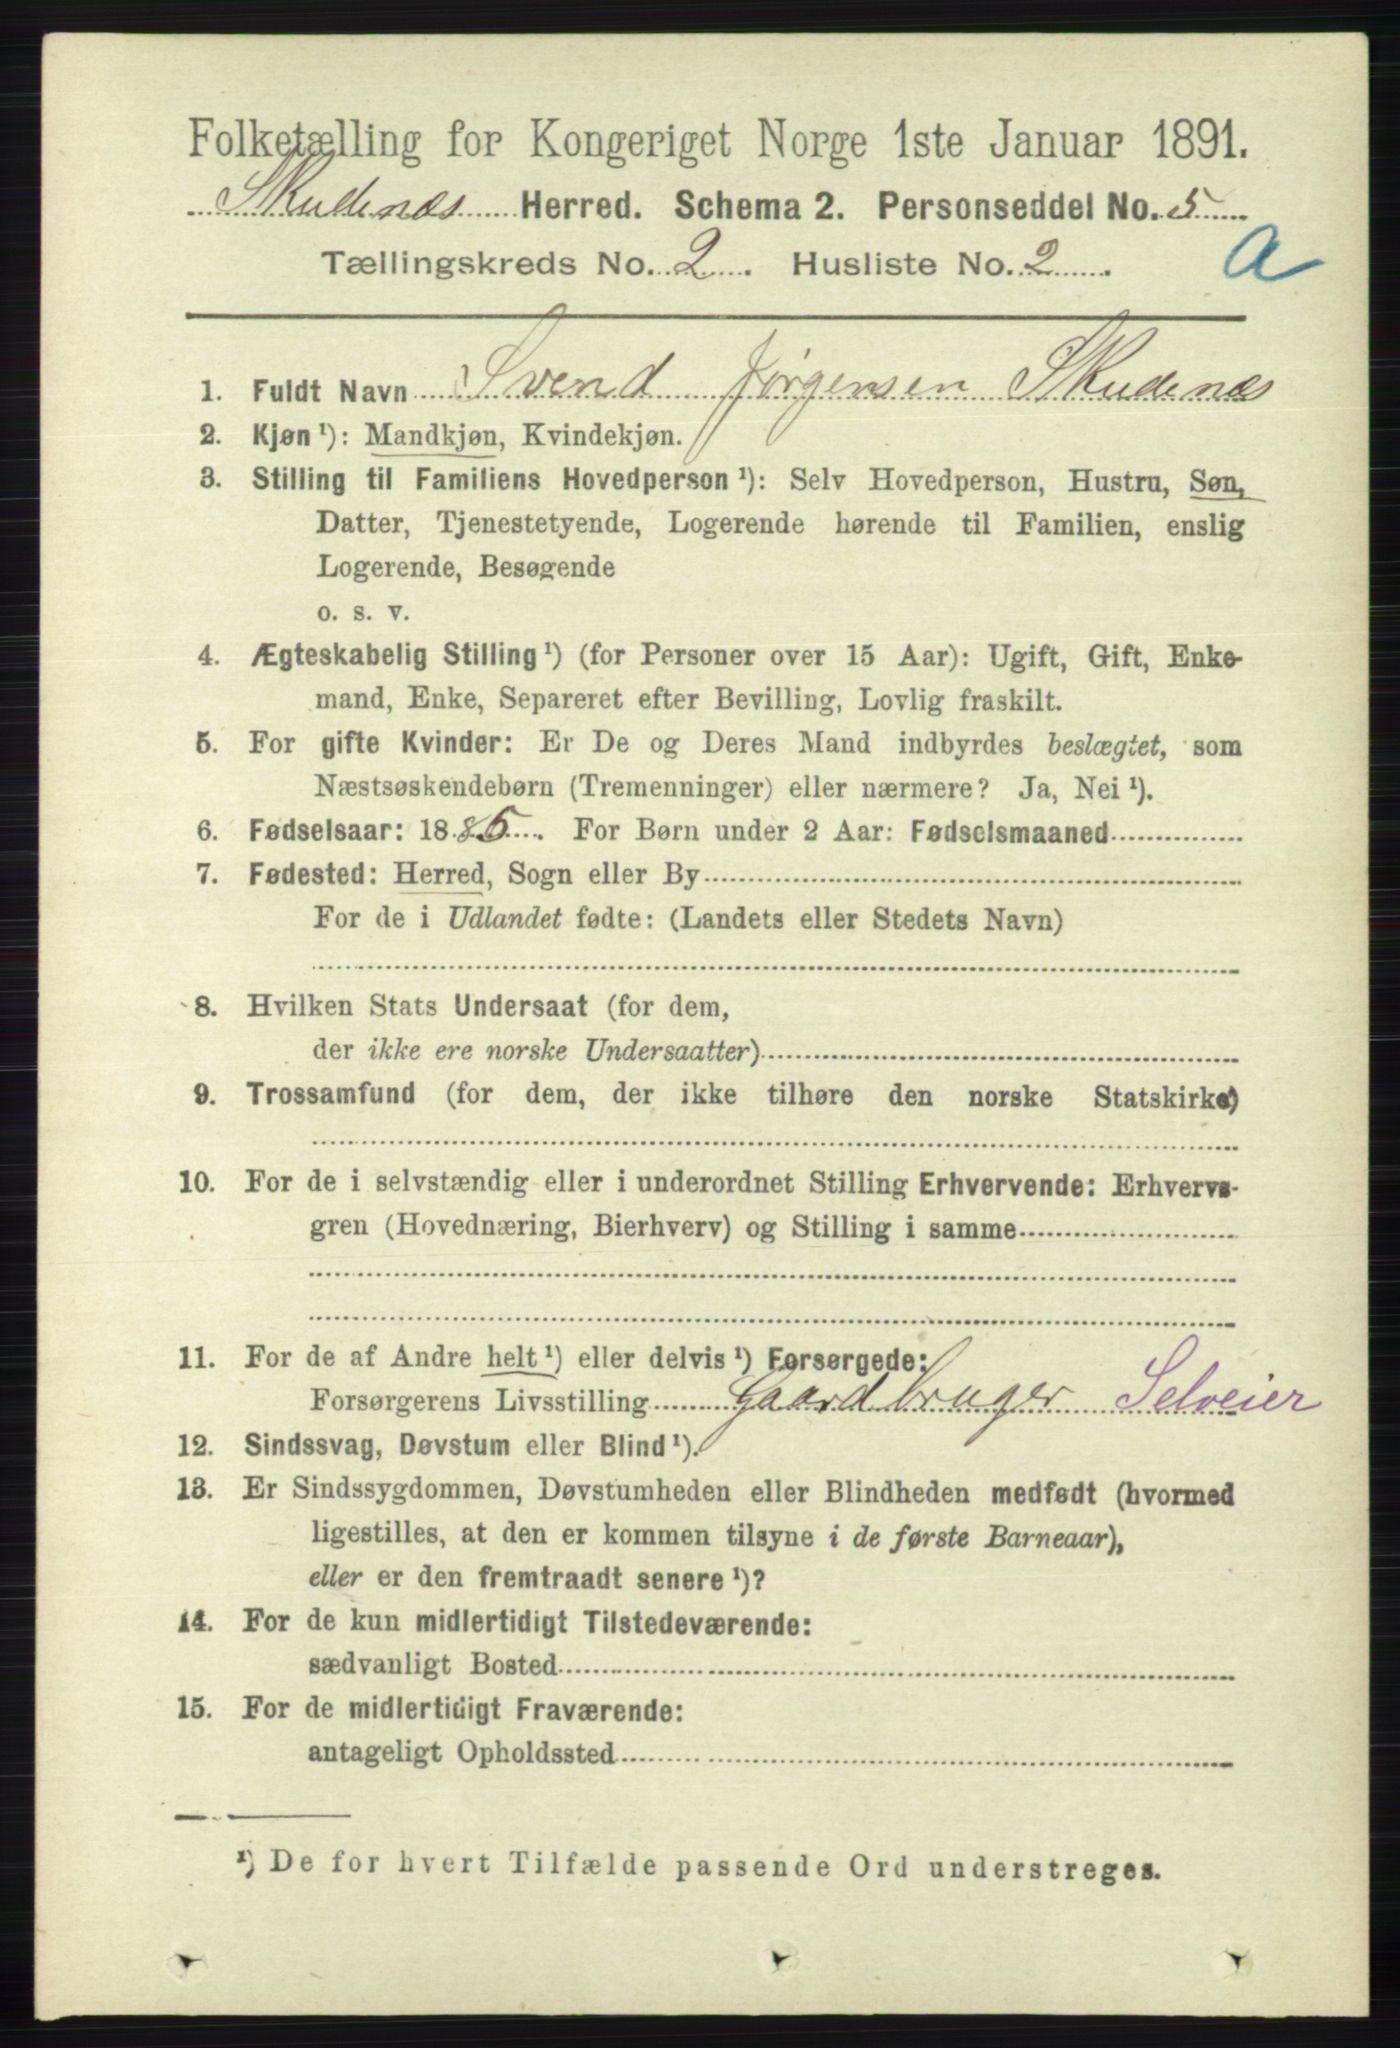 Folketælling for Kongeriget Norge 1ste Januar 1891.
Skudenæs Herred. Schema 2. Personseddel No. 5
Tællingskreds No. 2. Husliste No. 2. a
1. Fuldt Navn Svend Jørgensen Skudenæs
2. Kjøn¹): Mandkjøn, Kvindekjøn.
3. Stilling til Familiens Hovedperson¹): Selv Hovedperson, Hustru, Søn,
Datter, Tjenestetyende, Logerende hørende til Familien, enslig
Logerende, Besøgende
o. s. v.
4. Ægteskabelig Stilling¹) (for Personer over 15 Aar): Ugift, Gift, Enke-
mand, Enke, Separeret efter Bevilling, Lovlig fraskilt.
5. For gifte Kvinder: Er De og Deres Mand indbyrdes beslægtet, som
Næstsøskendebørn (Tremenninger) eller nærmere? Ja, Nei¹).
6. Fødselsaar: 1885. For Børn under 2 Aar: Fødselsmaaned
7. Fødested: Herred, Sogn eller By
For de i Udlandet fødte: (Landets eller Stedets Navn)
8. Hvilken Stats Undersaat (for dem,
der ikke ere norske Undersaatter)
9. Trossamfund (for dem, der ikke tilhøre den norske Statskirke)
10. For de i selvstændig eller i underordnet Stilling Erhvervende: Erhvervs-
gren (Hovednæring, Bierhverv) og Stilling i samme
11. For de af Andre helt¹) eller delvis¹) Forsørgede:
Forsørgerens Livsstilling Gaardbruger Selveier
12. Sindssvag, Døvstum eller Blind¹).
13. Er Sindssygdommen, Døvstumheden eller Blindheden medfødt (hvormed
ligestilles, at den er kommen tilsyne i de første Barneaar),
eller er den fremtraadt senere¹)?
14. For de kun midlertidigt Tilstedeværende:
sædvanligt Bosted
15. For de midlertidigt Fraværende:
antageligt Opholdssted
¹) De for hvert Tilfælde passende Ord understreges.